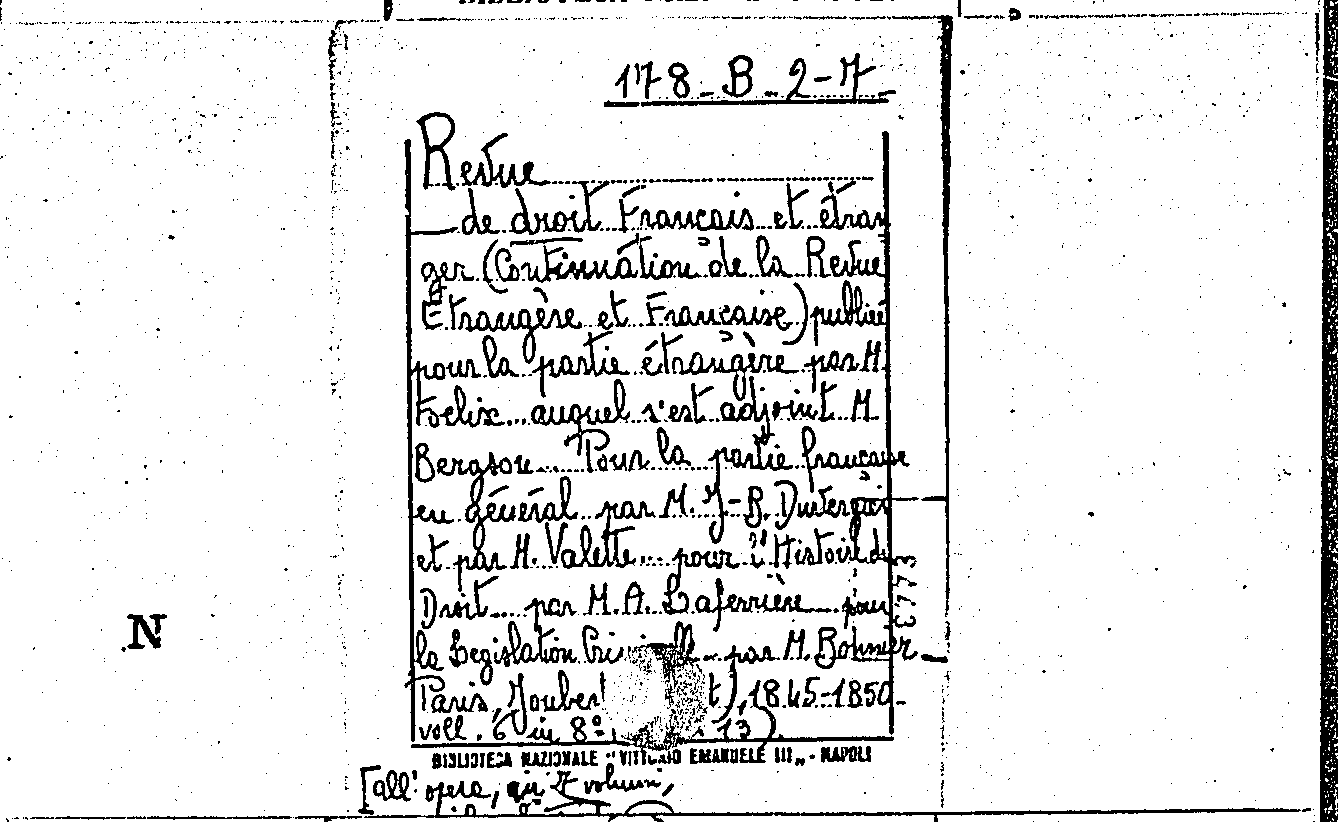 178-B-2-7
Revue
de droit Français et étran
ger (Continuation de la Revue
Etrangère et Française) publiée
pour la partie étrangère par M.
Foelix... auquel s'est adjoint M.
Bergson... Pour la partie française
en général par M. J-B. Duvergier
et par M. Valette... pour l'Histoire du
Droit... par M. A. Laferrière... pour
la Legislation Criminelle... par M. Bonnier
Paris, Joubert 1845-1850.
voll. 6 in 8° 13).
3773
N
BIBLIOTECA NAZIONALE "VITTORIO EMANUELE III" - NAPOLI
[all' opera, in 7 volumi,